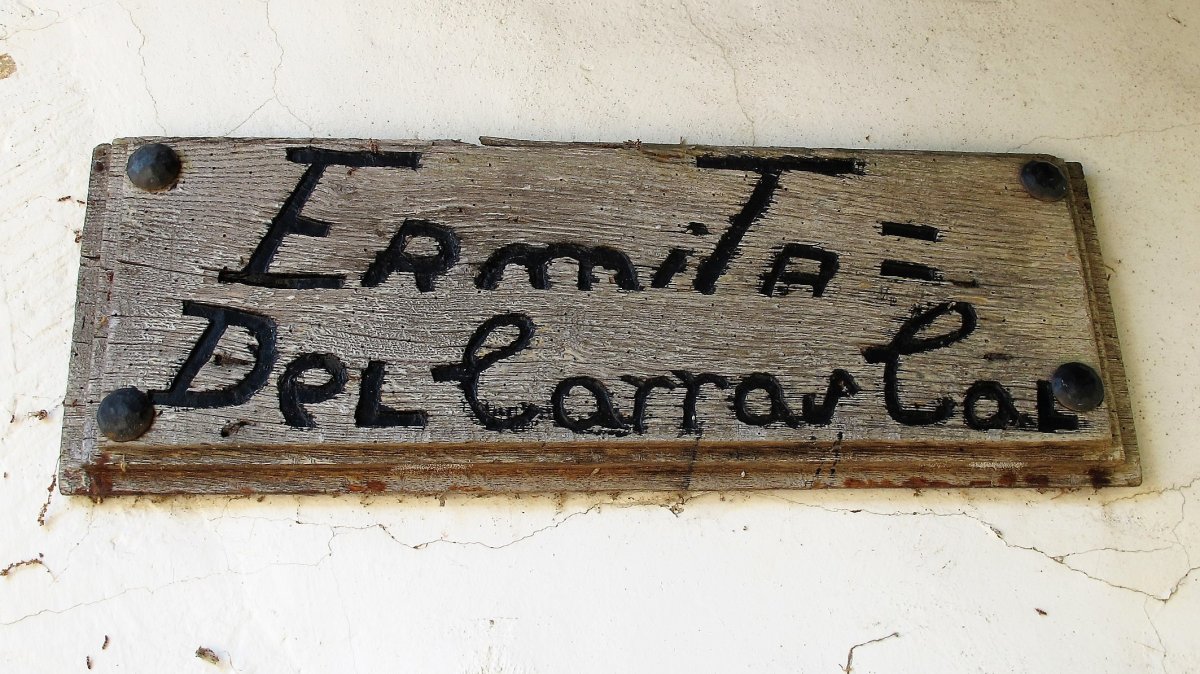 ErmiTa =
Del CarrasCal